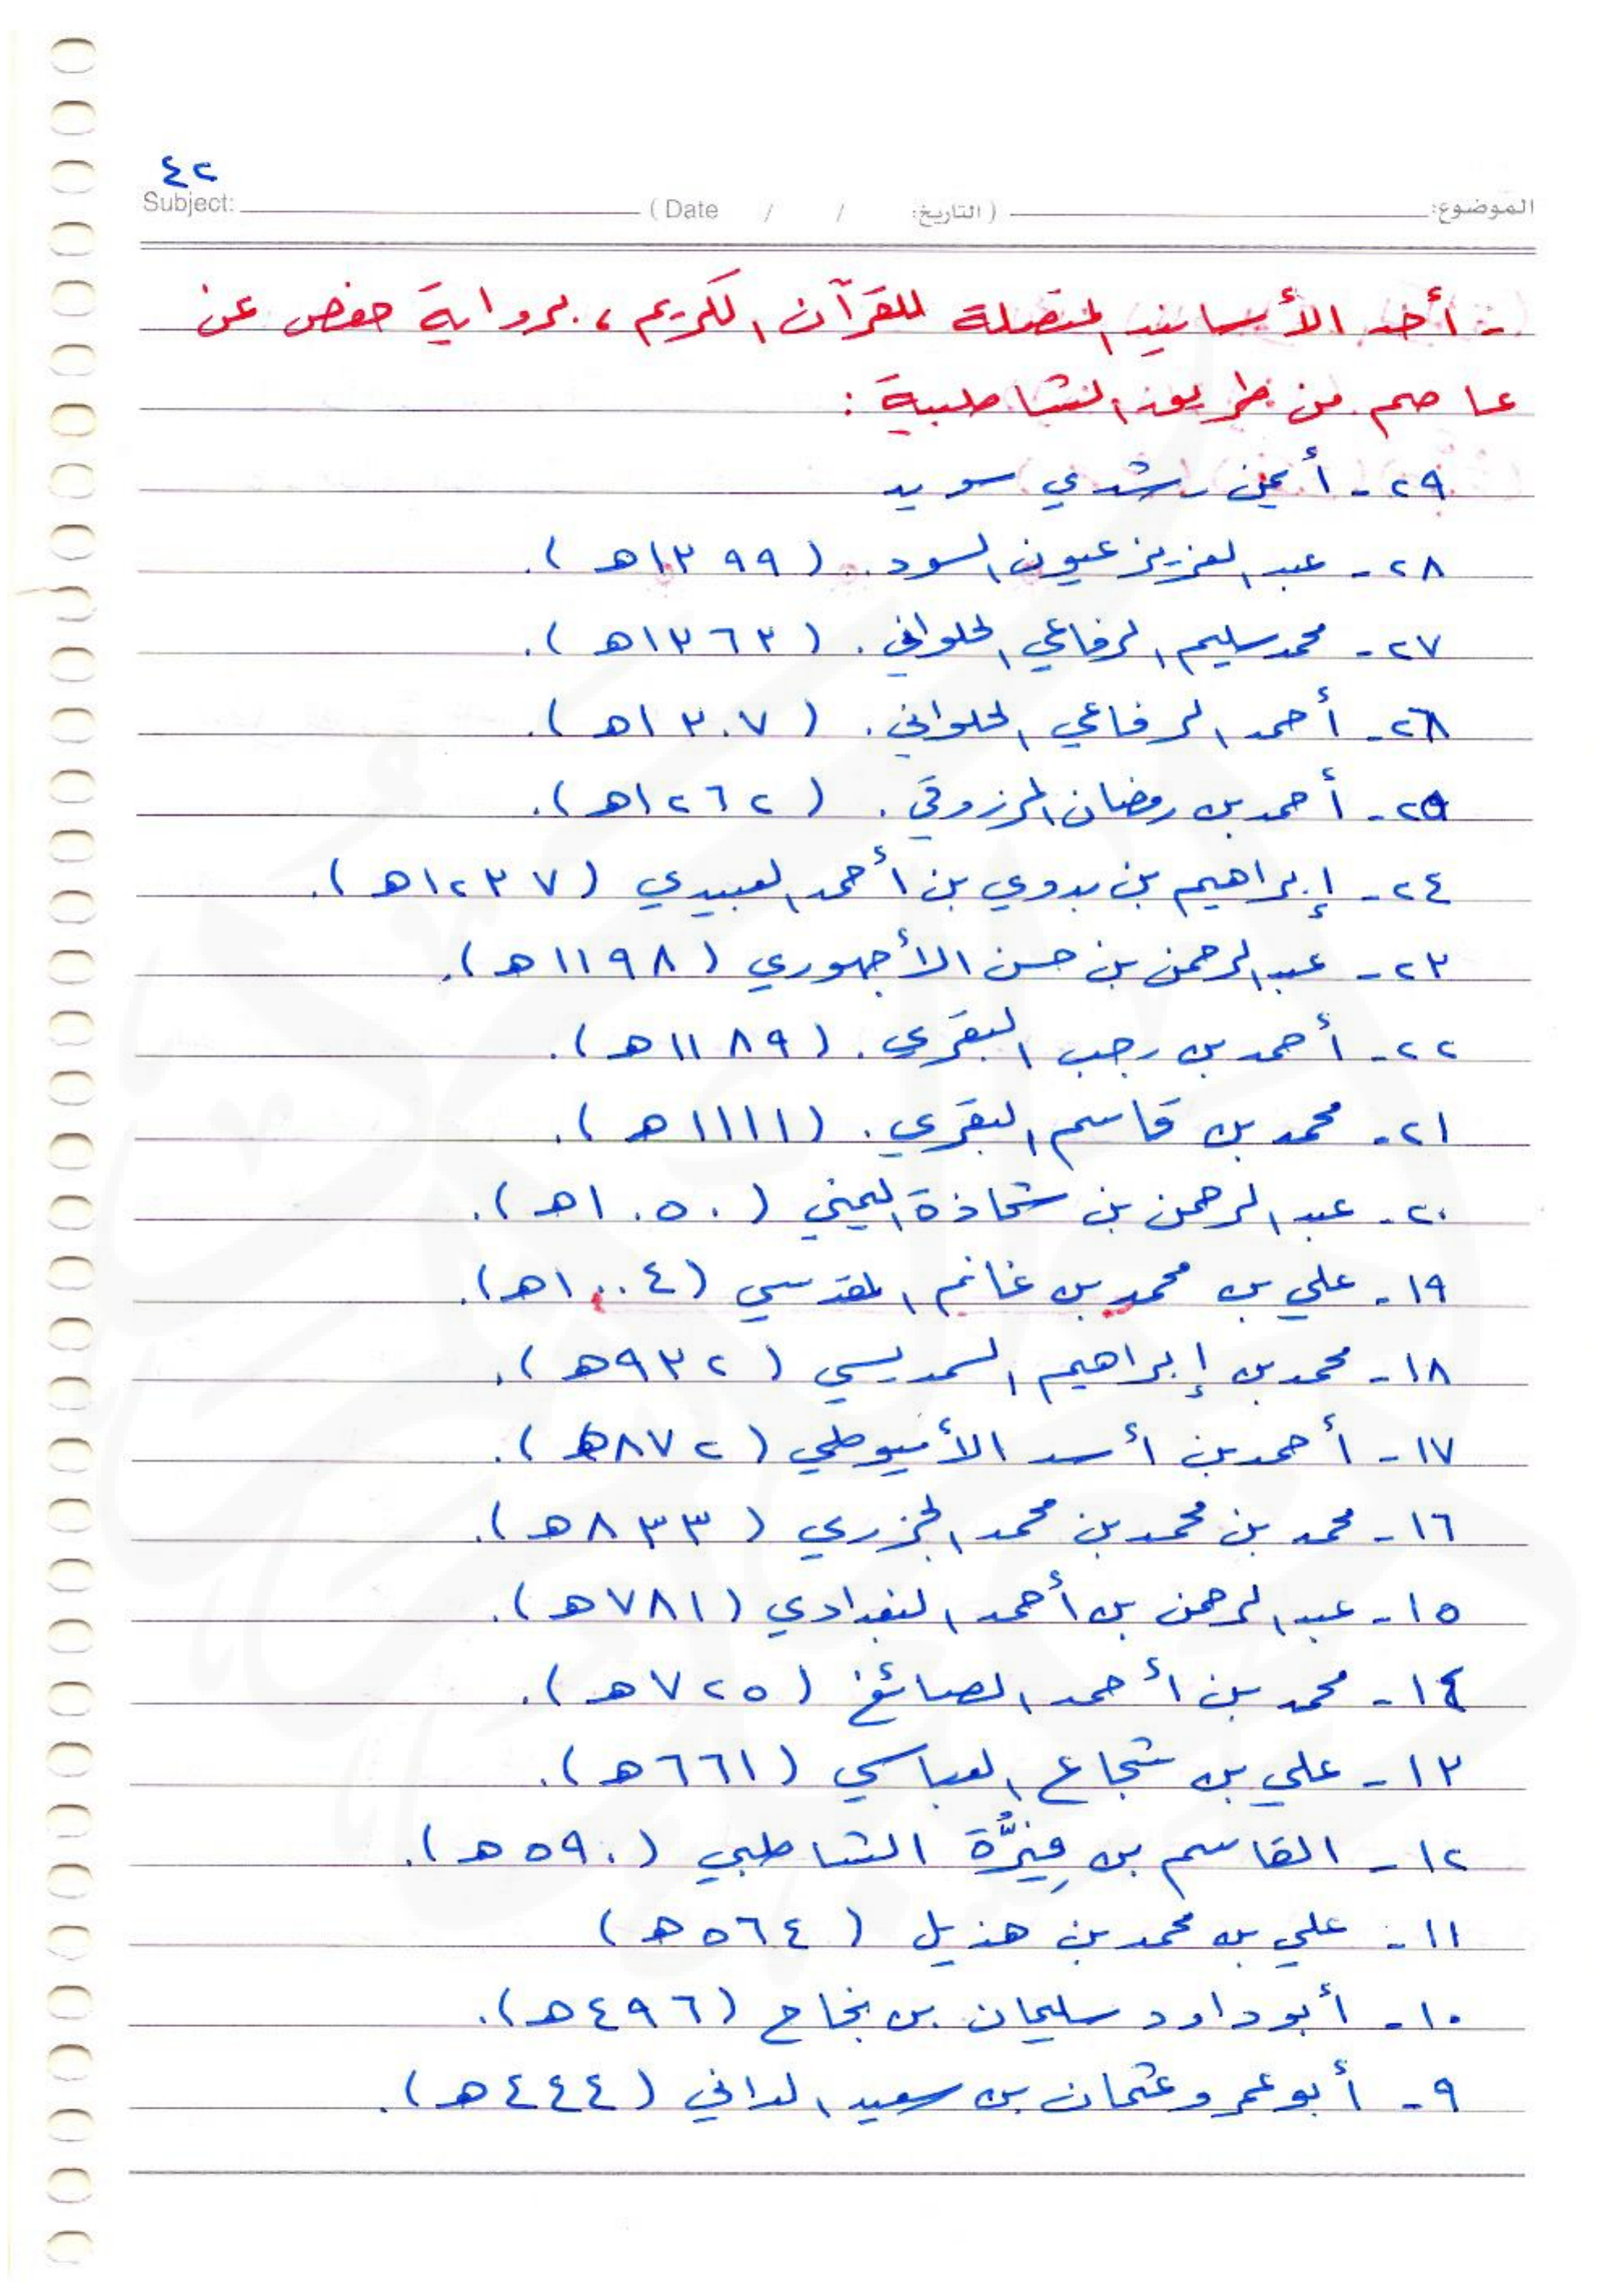 ٤٢
الموضوع: (التاريخ: / / Date) Subject:
- أحد الأسانيد المتصلة للقرآن الكريم ، برواية حفص عن
عاصم من طريق الشاطبية :
٢٩ - أيمن رشدي سويد
٢٨ - عبد العزيز عيون السود . (١٣٩٩هـ).
٢٧ - محمد سليم الرفاعي الحلواني . (١٣٦٣هـ).
٢٦ - أحمد الرفاعي الحلواني . (١٣٠٧هـ).
٢٥ - أحمد بن رمضان المرزوقي . (١٢٦٢هـ).
٢٤ - إبراهيم بن بدوي بن أحمد العبيدي (١٢٣٧هـ).
٢٣ - عبد الرحمن بن حسن الأجهوري (١١٩٨هـ).
٢٢ - أحمد بن رجب البقري . (١١٨٩هـ).
٢١ - محمد بن قاسم البقري . (١١١١هـ).
٢٠ - عبد الرحمن بن شحاذة اليمني (١٠٥٠هـ).
١٩ - علي بن محمد بن غانم المقدسي (١٠٠٤هـ).
١٨ - محمد بن إبراهيم السمديسي (٩٣٢هـ).
١٧ - أحمد بن أسد الأميوطي (٨٧٢هـ).
١٦ - محمد بن محمد بن محمد الجزري (٨٣٣هـ).
١٥ - عبد الرحمن بن أحمد البغدادي (٧٨١هـ).
١٤ - محمد بن أحمد الصائغ (٧٢٥هـ).
١٣ - علي بن شجاع العباسي (٦٦١هـ).
١٢ - القاسم بن فِيرُّة الشاطبي (٥٩٠هـ).
١١ - علي بن محمد بن هذيل (٥٦٤هـ)
١٠ - أبو داود سليمان بن نجاح (٤٩٦هـ).
٩ - أبو عمرو عثمان بن سعيد الداني (٤٤٤هـ).